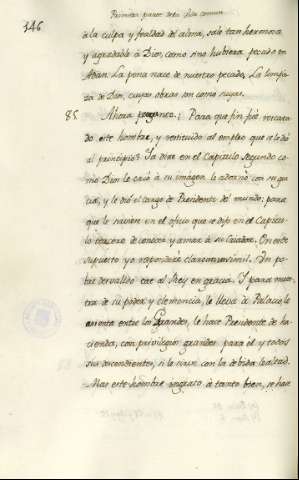 146
Primera parte de la
de la culpa y fealdad del alma, sale tan hermosa
y agradable à Dios, como sino hubiera pecado en
Adan. La pena nace de nuestro pecado, La limpie
za de Dios, cuyas obras son como suyas.
85. Ahora pregunto: Para que fin fue
do este hombre, y restituido al empleo que se le diò
al principio? Ya dixe en el Capitulo segundo co
mo Dios le criò à su imagen le adornò con su gra
cia, y le diò el cargo de Presidente del mundo; para
que le sirviese en el oficio que se dijo en el Capitu
lo tercero de conocer y amar à su Criador. On este
supuesto yo responderè claramente un simil. Un po
bre desvalido cae al Rey en gracia. Y para mues
tra de su poder y clemencia, le lleva à Palacio, lo
asienta entre los Grandes, le hace Presidente de ha
cienda, con privilegios grandes para èl y todos
sus descendientes, si le sirven con la debida lealtad.
Mas este hombre ingrato à tanto bien, se hace